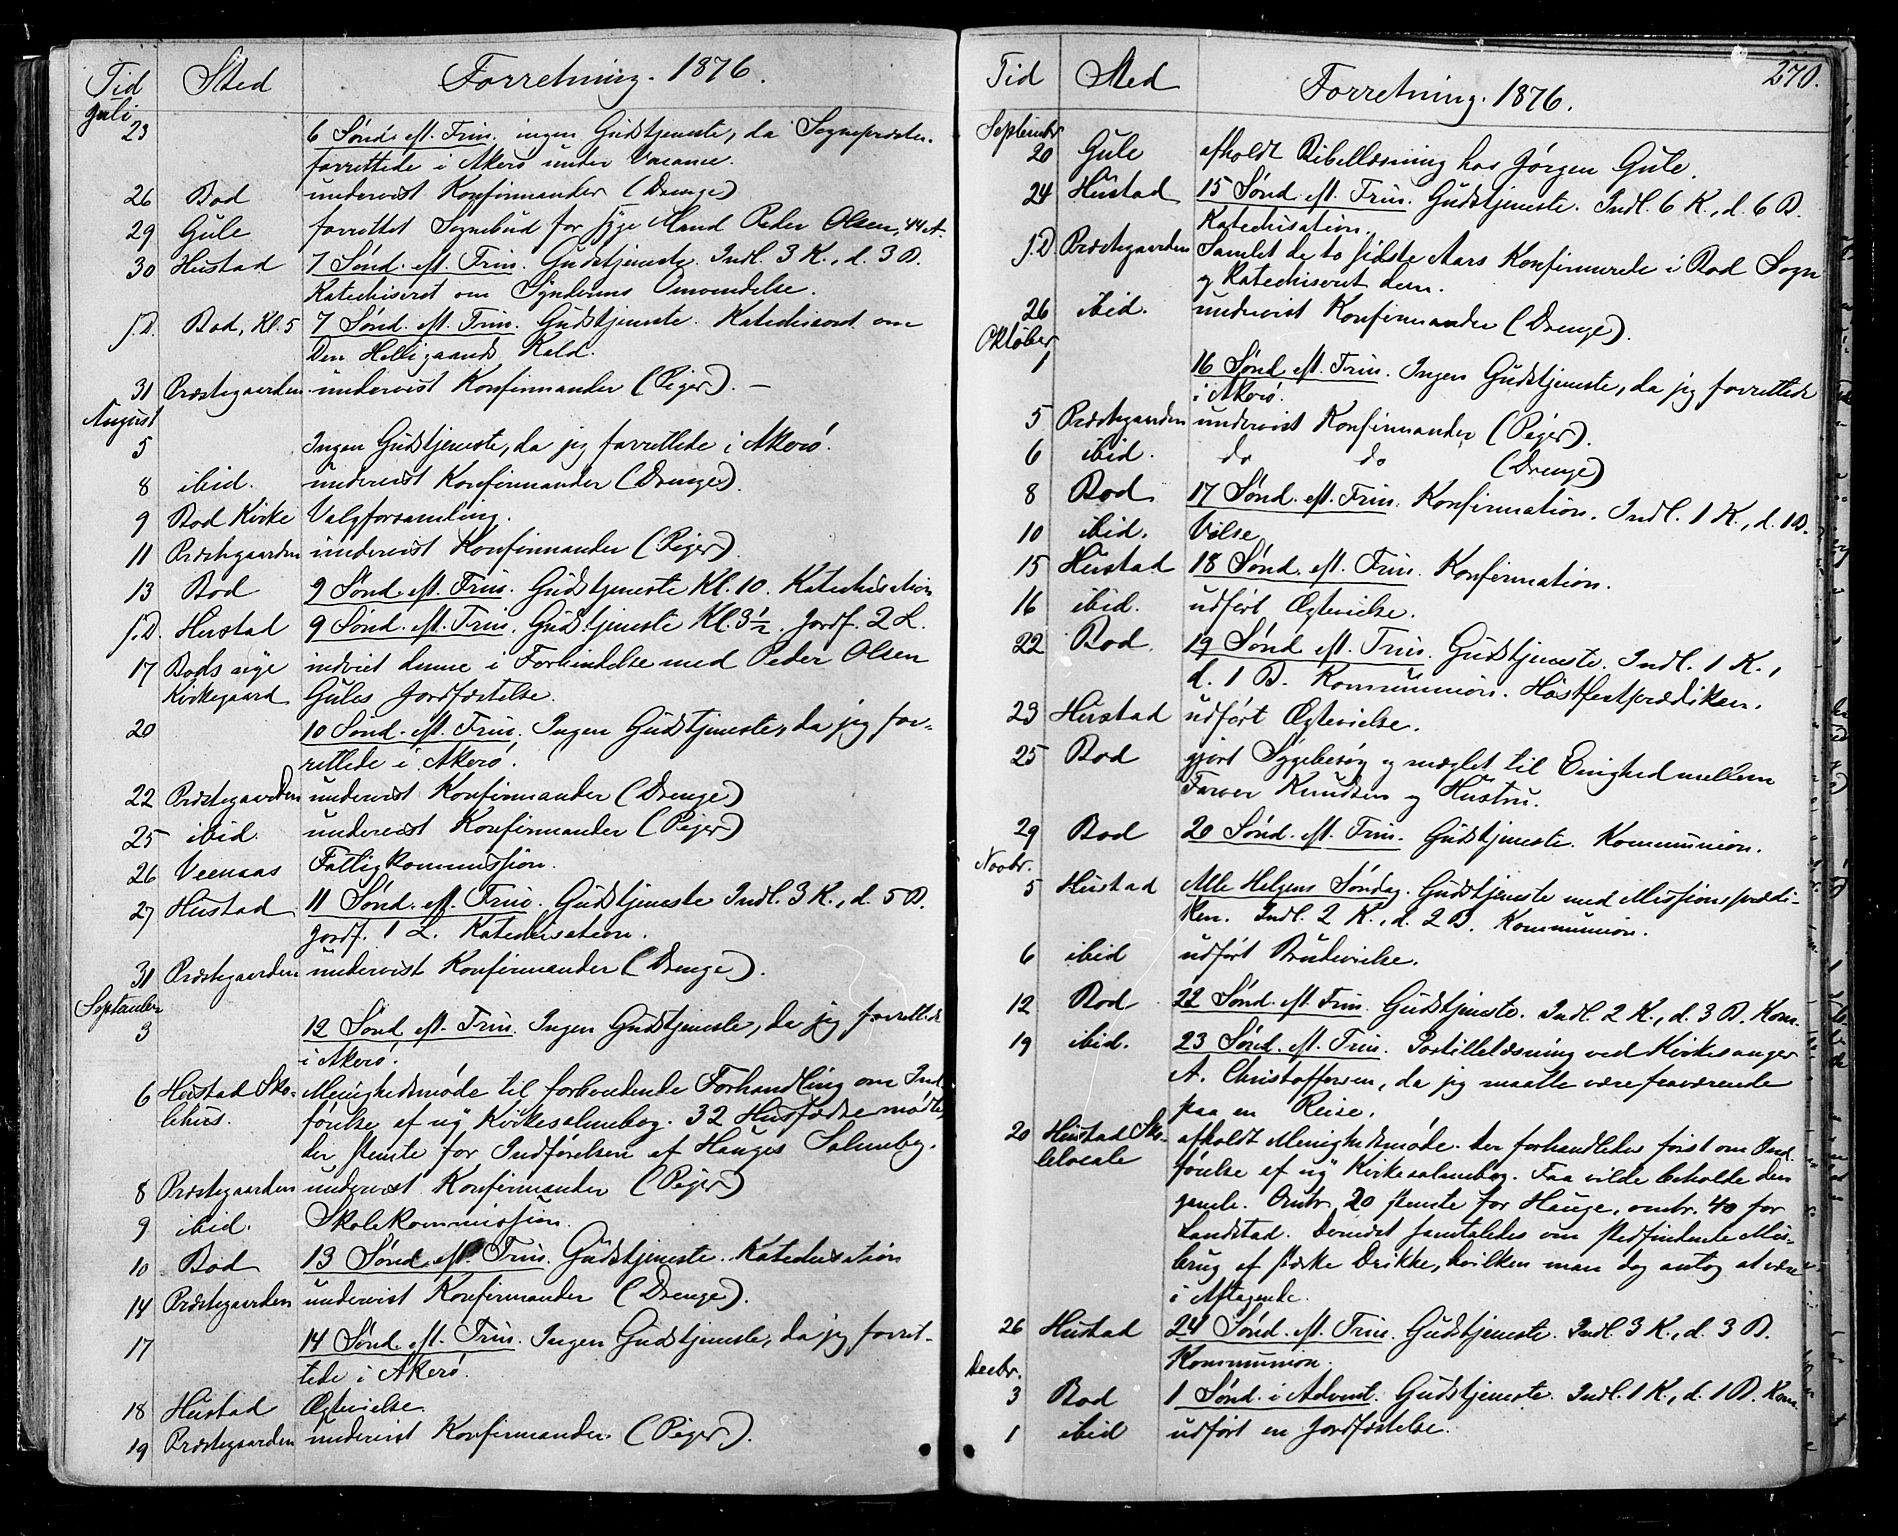 Tid Sted Forretning. 1876.
Juli
23 6 Sønd. eft. Trin. ingen Gudstjeneste, da Sognepræsten
forrettede i Akerø under Vacance.
26 Bod undervist Konfirmander (Drenge)
29 Gule forrettet Sognebud for syge Mand Peder Olsen, 44 A.
30 Hustad 7 Sønd. eft. Trin. Gudstjeneste. Indl. 3 K., d. 3 B.
Katechiseret om Synderens Omvendelse.
s.D. Bod, Kl. 5 7 Sønd. eft. Trin. Gudstjeneste. Katechiseret om
Den Helligaands Kald.
31 Præstegaarden undervist Konfirmander (Piger). –
August
5 Ingen Gudstjeneste, da jeg forrettede i Akerø.
8 ibid. undervist Konfirmander (Drenge).
9 Bod Kirke Valgforsamling.
11 Præstegaarden undervist Konfirmander (Piger)
13 Bod 9 Sønd. eft. Trin. Gudstjeneste Kl. 10. Katechisation
s.D. Hustad 9 Sønd. eft. Trin. Gudstjeneste Kl. 3½. Jordf. 2 L.
17 Bods nye indviet denne i Forbindelse med Peder Olsen
Kirkegaard Gules Jordfæstelse.
20 10 Sønd. eft. Trin. Ingen Gudstjeneste, da jeg for-
rettede i Akerø.
22 Præstegaarden undervist Konfirmander (Drenge)
25 ibid. undervist Konfirmander (Piger)
26 Veenaas Fattigkommission.
27 Hustad 11 Sønd. eft. Trin. Gudstjeneste Indl. 3 K., d. 5 B.
Jordf. 1 L. Katechisation.
31 Præstegaarden undervist Konfirmander (Drenge).
September
3 12 Sønd. eft. Trin. Ingen Gudstjeneste, da jeg forrettede
i Akerø.
6 Hustad Sko- Menighedsmøde til forberedende Forhandling om Ind-
lehus. førelse af ny Kirkesalmebog. 32 Husfædre mødte,
der stemte for Indførelsen af Hauges Salmebog.
8 Præstegaarden undervist Konfirmander (Piger)
9 ibid. Skolekommission.
10 Bod 13 Sønd. eft. Trin. Gudstjeneste. Katechisation
14 Præstegaarden undervist Konfirmander (Drenge).
17 14 Sønd. eft. Trin. Ingen Gudstjeneste, da jeg forret-
tede i Akerø.
18 Hustad Ægtevielse.
19 Præstegaarden undervist Konfirmander (Piger).
270.
Tid Sted Forretning. 1876.
Septembr
20 Gule afholdt Bibellæsning hos Jørgen Gule.
24 Hustad 15 Sønd. eft. Trin. Gudstjeneste. Indl. 6 K., d. 6 B.
Katechisation.
s.D. Præstegaarden Samlet de to sidste Aars Konfirmerede i Bod Sogn
og Katechiseret dem.
26 ibid. undervist Konfirmander (Drenge).
Oktober
1 16 Sønd. eft. Trin. Ingen Gudstjeneste, da jeg forrettede
i Akerø.
5 Præstegaarden undervist Konfirmander (Piger).
6 ibid. do do (Drenge)
8 Bod 17 Sønd. eft. Trin. Konfirmation. Indl. 1 K., d. 1 B.
10 ibid. Vielse
15 Hustad 18 Sønd. eft. Trin. Konfirmation.
16 ibid. udført Ægtevielse.
22 Bod. 19 Sønd. eft. Trin. Gudstjeneste. Indl. 1 K.,
d. 1 B. Kommunion. Høstfestprædiken.
23 Hustad udført Ægtevielse.
25 Bod gjort Sygebesøg og mæglet til Enighed mellem
Farver Knudsen og Hustru.
29 Bod 20 Sønd. eft. Trin. Gudstjeneste. Kommunion.
Novbr.
5 Hustad Alle Helgens Søndag. Gudstjeneste med Missionsprædi-
ken. Indl. 2 K., d. 2 B. Kommunion.
6 ibid udført Brudevielse.
12 Bod 22 Sønd. eft. Trin. Gudstjeneste. Indl. 2 K., d. 3 B. Kom.
19 ibid. 23 Sønd. eft. Trin. Postillelæsning ved Kirkesanger
A. Christoffersen, da jeg maatte være fraværende
paa en Reise.
20 Hustad Sko- afholdt Menighedsmøde. der forhandledes først om Ind-
lelocale førelse af ny Kirkesalmebog. Faa vilde beholde den
gamle. Omtr. 20 stemte for Hauge, omtr. 40 for
Landstad. Dernæst samtaledes om stedfindende Mis-
brug af stærke Drikke, hvilken man dog antog at være
i Aftagende.
26 Hustad 24 Sønd. eft. Trin. Gudstjeneste. Indl 3 K., d. 3 B.
Kommunion.
Decbr.
3 Bod 1 Sønd. i Advent. Gudstjeneste. Indl. 1 K., d. 1 B. Kom.
1 ibid udført en Jordfæstelse.